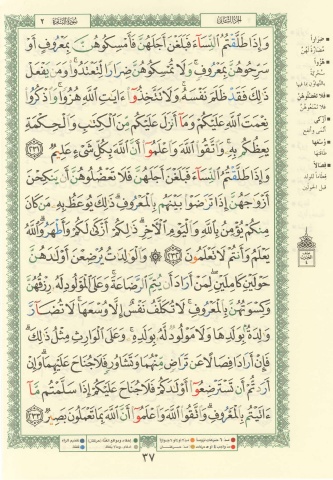 الجزء الثاني
سورة البقرة ٢
وَإِذَا طَلَّقْتُمُ ٱلنِّسَآءَ فَبَلَغْنَ أَجَلَهُنَّ فَأَمْسِكُوهُنَّ بِمَعْرُوفٍ أَوْ
سَرِّحُوهُنَّ بِمَعْرُوفٍ وَلَا تُمْسِكُوهُنَّ ضِرَارًا لِّتَعْتَدُوا۟ وَمَن يَفْعَلْ
ذَٰلِكَ فَقَدْ ظَلَمَ نَفْسَهُۥ وَلَا تَتَّخِذُوٓا۟ ءَايَٰتِ ٱللَّهِ هُزُوًا وَٱذْكُرُوا۟
نِعْمَتَ ٱللَّهِ عَلَيْكُمْ وَمَآ أَنزَلَ عَلَيْكُم مِّنَ ٱلْكِتَٰبِ وَٱلْحِكْمَةِ
يَعِظُكُم بِهِۦ وَٱتَّقُوا۟ ٱللَّهَ وَٱعْلَمُوٓا۟ أَنَّ ٱللَّهَ بِكُلِّ شَىْءٍ عَلِيمٌ ٢٣١
وَإِذَا طَلَّقْتُمُ ٱلنِّسَآءَ فَبَلَغْنَ أَجَلَهُنَّ فَلَا تَعْضُلُوهُنَّ أَن يَنكِحْنَ
أَزْوَٰجَهُنَّ إِذَا تَرَٰضَوْا۟ بَيْنَهُم بِٱلْمَعْرُوفِ ذَٰلِكَ يُوعَظُ بِهِۦ مَن كَانَ
مِنكُمْ يُؤْمِنُ بِٱللَّهِ وَٱلْيَوْمِ ٱلْءَاخِرِ ذَٰلِكُمْ أَزْكَىٰ لَكُمْ وَأَطْهَرُ وَٱللَّهُ
يَعْلَمُ وَأَنتُمْ لَا تَعْلَمُونَ ٢٣٢ وَٱلْوَٰلِدَٰتُ يُرْضِعْنَ أَوْلَٰدَهُنَّ
حَوْلَيْنِ كَامِلَيْنِ لِمَنْ أَرَادَ أَن يُتِمَّ ٱلرَّضَاعَةَ وَعَلَى ٱلْمَوْلُودِ لَهُۥ رِزْقُهُنَّ
وَكِسْوَتُهُنَّ بِٱلْمَعْرُوفِ لَا تُكَلَّفُ نَفْسٌ إِلَّا وُسْعَهَا لَا تُضَآرَّ
وَٰلِدَةٌۢ بِوَلَدِهَا وَلَا مَوْلُودٌ لَّهُۥ بِوَلَدِهِۦ وَعَلَى ٱلْوَارِثِ مِثْلُ ذَٰلِكَ
فَإِنْ أَرَادَا فِصَالًا عَن تَرَاضٍ مِّنْهُمَا وَتَشَاوُرٍ فَلَا جُنَاحَ عَلَيْهِمَا وَإِنْ
أَرَدتُّمْ أَن تَسْتَرْضِعُوٓا۟ أَوْلَٰدَكُمْ فَلَا جُنَاحَ عَلَيْكُمْ إِذَا سَلَّمْتُم مَّآ
ءَاتَيْتُم بِٱلْمَعْرُوفِ وَٱتَّقُوا۟ ٱللَّهَ وَٱعْلَمُوٓا۟ أَنَّ ٱللَّهَ بِمَا تَعْمَلُونَ بَصِيرٌ ٢٣٣
٣٧